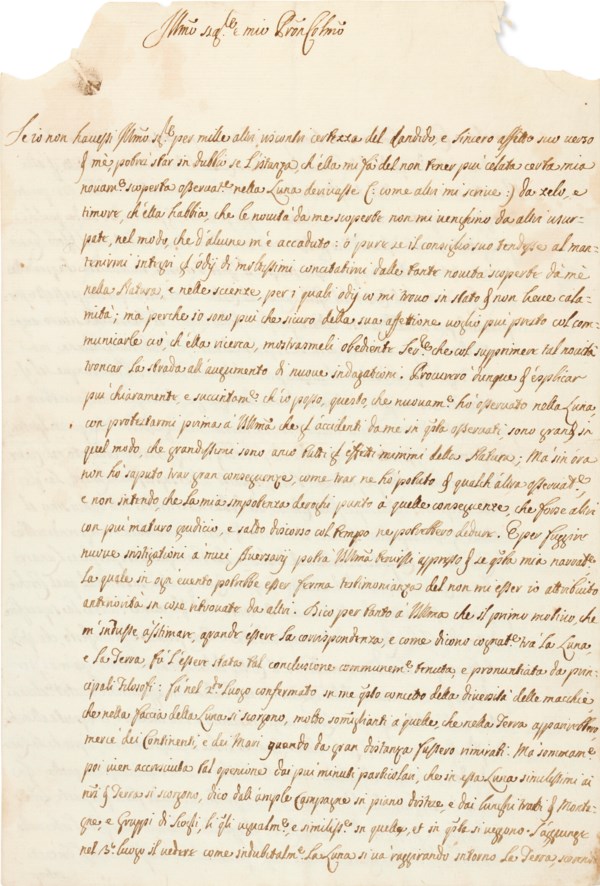 Illmo sig.re e mio Pron Colmo
Se io non havessi Illmo s.re per mille altri riscontri certezza del candido, e sincero affetto suo verso
di mè, potrei star in dubbio se l'istanza, ch'ella mi fà del non tener più celata certa mia
novam.te scoperta osservat.ne nella Luna derivasse (: come altri mi scrive :) da zelo, e
timore, ch'ella habbia, che le novità da me scoperte non mi venghino da altri usur-
pate, nel modo, che d'alcune m'è accaduto: ò pure se il consiglio suo tendesse al man-
tenirmi integri gl'odij di moltissimi concitatimi dalle tante novità scoperte da mè
nella Natura, e nelle scienze, per i quali odij io mi trovo in stato di non lieve cala-
mità; ma perche io sono più che sicuro della sua affettione voglio più presto col com-
municarle ciò, ch'ella ricerca, mostrarmeli obediente che col supprimere tal novità
troncar la strada all'augumento di nuove indagationi. Procurerò dunque d'esplicar
più chiaramente, e succintam.te ch'io posso, questo che nuovam.te hò osservato nella Luna,
con protestarmi prima à VIllma che gl'accidenti da me in q.sta osservati, sono grandi in
quel modo, che grandissimi sono anco tutti gl'effetti minimi della Natura; Mà sin'ora
non hò saputo trar gran conseguenze, come trar ne hò potuto di qualch'altra osservat.ne
e non intendo, che la mia impotenza deroghi punto à quelle conseguenze, che forse altri
con più maturo giudicio, e saldo discorso col tempo ne potrebbero dedurre. E per fuggire
nuove instigationi a miei Aversarij potrà VIllma tenirsi appresso di se q.sta mia narrat.ne
la quale in ogni evento potrebbe esser ferma testimonianza del non mi esser io attribuito
anteriorità in cose ritrovate da altri. Dico per tanto à VIllma che il primo motivo, che
m'indusse, à stimare, grande essere la corrispondenza, e come dicono cognat.ne trà la Luna,
e la Terra, fù l'essere stata tal conclusione communem.te tenuta, e pronuntiata da prin-
cipali Filosofi: fù nel 2.o luogo confermato in me q.sto concetto della diversità delle macchie
che nella faccia della Luna si scorgono, molto somiglianti a quelle, che nella Terra apparirebbero
mercè dei Continenti, e dei Mari quando da gran distanza fussero rimirati: Mà sommam.te
poi vien accresciuta tal openione dai più minuti particolari, che in essa Luna simillissimi ai
nri di Terra si scorgono, dico dall'ample Campagne in piano distese, e dai lunghi tratti di Monta-
gne, e Gruppi di Scogli, li q.li ugualm.te, e in quella, et in q.sta si veggono. S'aggiunge
nel 3.o luogo il vedere come indubitalm.te la Luna si và raggirando intorno la Terra,